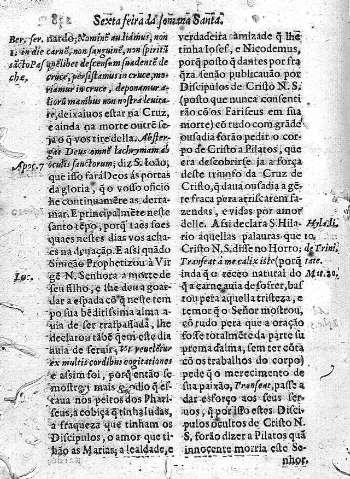 Sexta feira da somana Santa.
Ber. ser.
1. in die
sācto Pas
chæ,
Apoc. 7
nardo; Neminē audiamus, non
carnē, non sanguinē, non spiritū
quēlibet descensum suadentē de
cruce, persistamus in cruce, mo-
riamur in cruce, deponamur a-
liorū manibus non nostra levita-
te, deixaivos estar na Cruz,
e ainda na morte outrē se-
ja o q̄ vos tire della. Abster-
get Deus omnē lachrymam ab
oculis sanctorum; diz S. Ioão,
que isso fará Deos ás portas
da gloria, q̄ o vosso officio
he continuamēte as derra-
mar. E principalmēte neste
santo tēpo, porq̄ taes soes
quaes nestes dias vos achaes
na devação. E assi quādo
Simeão Prophetizou á Vir-
gē N. Senhora a morte de
seu filho, e lhe deu a goar-
dar a espada cō q̄ neste tem
po sua bēditissima alma a-
via de ser traspassada, lhe
declarou tābē que̅ em este dia
avia de servir, ut revelētur
ex multis cordibus cogitationes
e assim foi, porq̄ então se
mostrou mais o odio q̄ es-
tava nos peitos dos Phari-
seus, a cobiça q̄ tinha Iudas,
a fraqueza que tinham os
Discipulos, o amor que ti-
nhão as Marias, a lealdade, e
verdadeira amizade q̄ lhe
tinha Iosef, e Nicodemus,
porq̄ posto q̄ dantes por fra
q̄za senão publicavão por
Discipulos de Cristo N. S.
(posto que nunca consenti-
rão cō os Fariseus em sua
morte) cō tudo com grāde
ousadia forão pedir o cor-
po de Cristo a Pilatos, que
era descobrirse ja a força
deste triumfo da Cruz de
Cristo, q̄ dava ousadia a gē-
te fraca pera arriscarem fa-
zendas, e vidas por amor
delle. Assi declara S. Hila-
rio áquellas palauras que
Cristo N. S. disse no Horto;
Transeat à me calix iste (porq̄
inda q̄ o receo natural do
q̄ a carne avia de sofrer, bas
tou pera aquella tristeza, e
temor que o Señor mostrou,
cō tudo pera que a oração
fosse totalmēte da parte su
prema da alma, sem ter côta
cō os trabalhos do corpo)
pede q̄ o merecimento de
sua paixão, Transeat, passe a
dar esforço aos seus ser-
vos, q̄ por isso estes Disci-
pulos ocultos de Cristo N.
S, forão dizer a Pilatos quā
innocente morria este Se-
nhor.
Hyla.li.
de Trini.
Mat. 20.